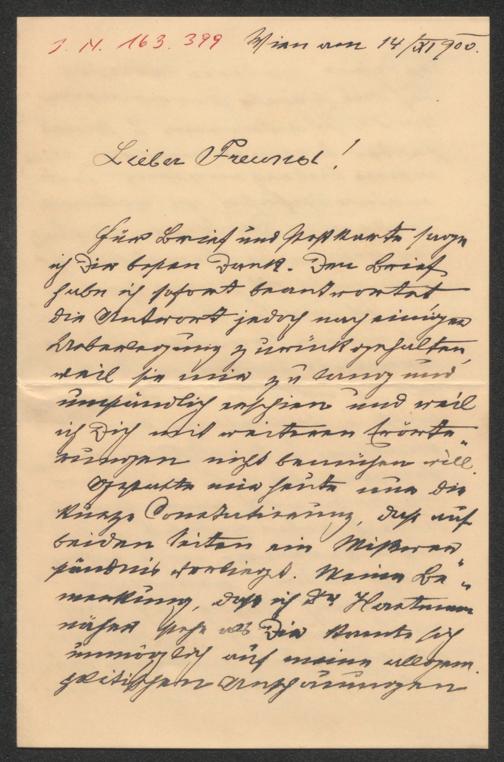 J. N. 163.399
Wien am 14/XI 900.
Lieber Freund!
Für Brief und Postkarte sage
ich Dir besten Dank. Den Brief
habe ich sofort beantwortet
die Antwort jedoch nach einiger
Ueberlegung zurückgehalten,
weil sie mir zu lang und
umständlich erschien und weil
ich Dich mit weiteren Erörte-
rungen nicht bemühen will.
Gestatte mir heute nur die
kurze Constatierung, daß auf
beiden Seiten ein Mißver-
ständnis vorliegt. Meine Be-
merkung, daß ich Dr Hartmann
näher stehe als Dir konnte sich
unmöglich auf meine allgem.
politischen Anschauungen